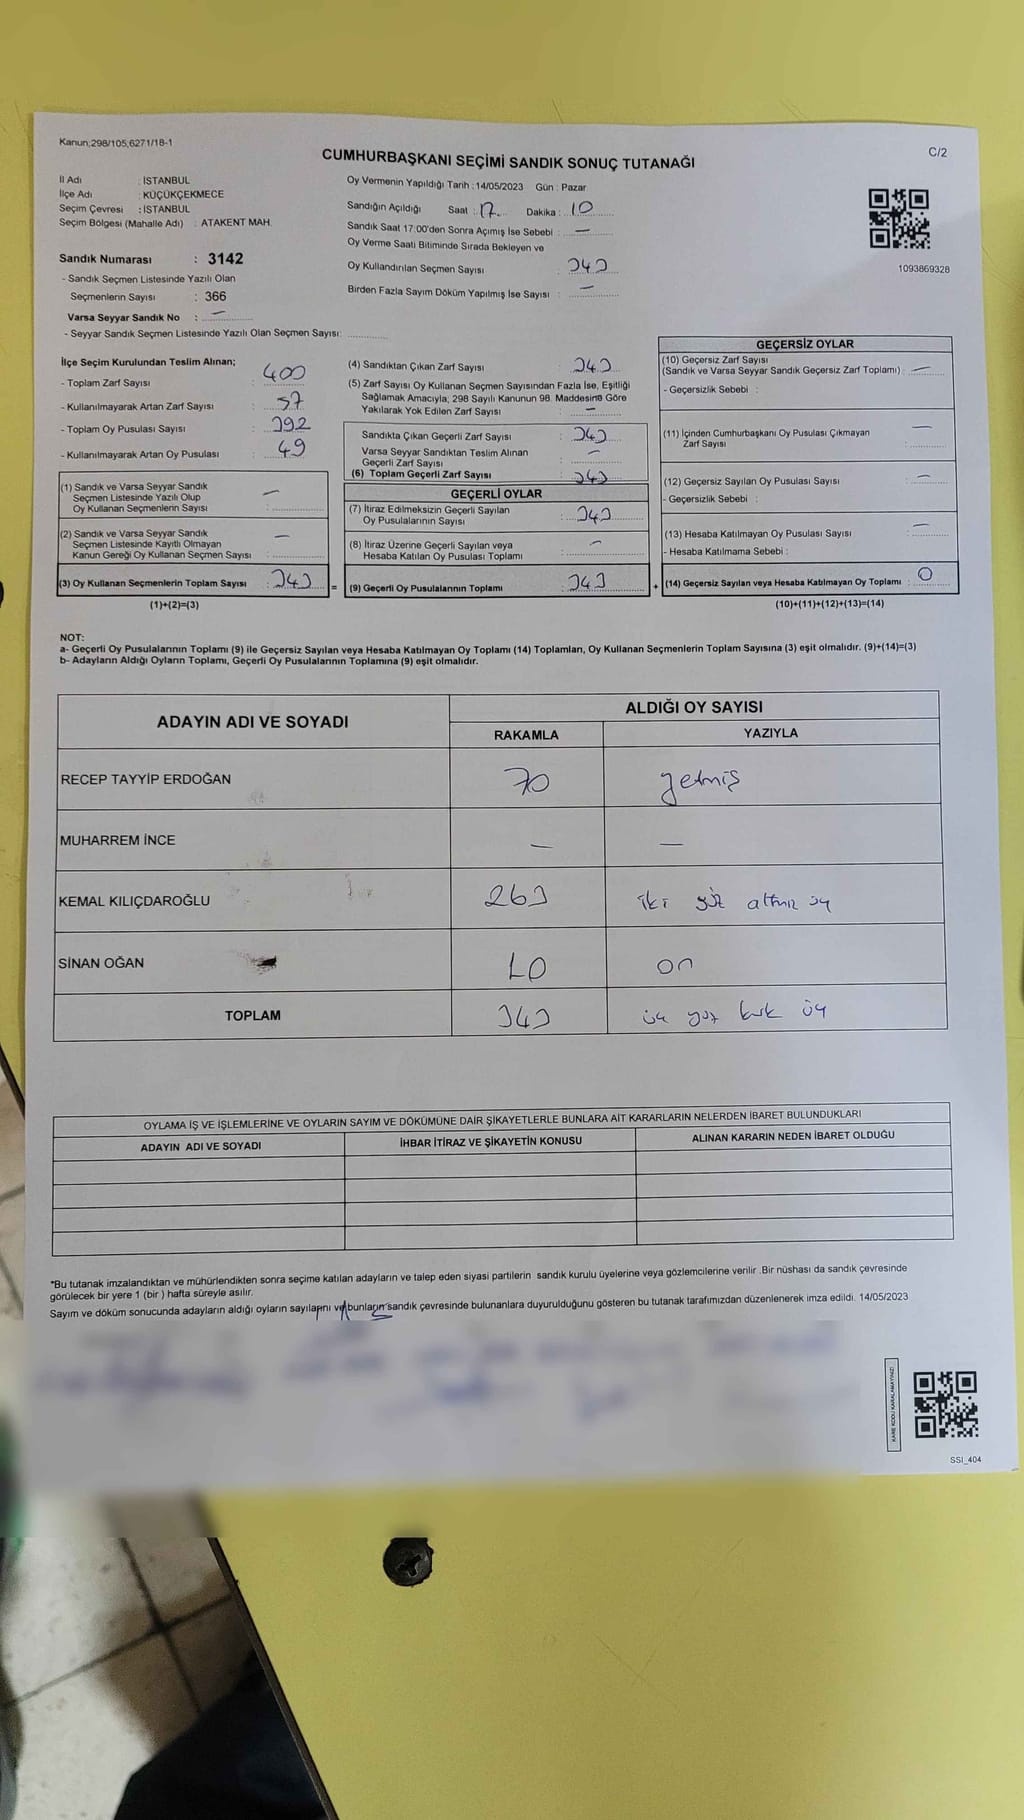 Kanun;298/105,6271/18-1
C/2
CUMHURBAŞKANI SEÇİMİ SANDIK SONUÇ TUTANAĞI
İl Adı : İSTANBUL
İlçe Adı : KÜÇÜKÇEKMECE
Seçim Çevresi : İSTANBUL
Seçim Bölgesi (Mahalle Adı) : ATAKENT MAH.
Sandık Numarası : 3142
- Sandık Seçmen Listesinde Yazılı Olan
Seçmenlerin Sayısı : 366
Varsa Seyyar Sandık No : —
- Seyyar Sandık Seçmen Listesinde Yazılı Olan Seçmen Sayısı:
Oy Vermenin Yapıldığı Tarih : 14/05/2023 Gün : Pazar
Sandığın Açıldığı Saat : 17 Dakika : 10
Sandık Saat 17:00'den Sonra Açımış İse Sebebi : —
Oy Verme Saati Bitiminde Sırada Bekleyen ve
Oy Kullandırılan Seçmen Sayısı : 343
Birden Fazla Sayım Döküm Yapılmış İse Sayısı : —
1093869328
İlçe Seçim Kurulundan Teslim Alınan;
- Toplam Zarf Sayısı : 400
- Kullanılmayarak Artan Zarf Sayısı : 57
- Toplam Oy Pusulası Sayısı : 392
- Kullanılmayarak Artan Oy Pusulası : 49
(1) Sandık ve Varsa Seyyar Sandık
Seçmen Listesinde Yazılı Olup
Oy Kullanan Seçmenlerin Sayısı : —
(2) Sandık ve Varsa Seyyar Sandık
Seçmen Listesinde Kayıtlı Olmayan
Kanun Gereği Oy Kullanan Seçmen Sayısı : —
(3) Oy Kullanan Seçmenlerin Toplam Sayısı : 343 =
(1)+(2)=(3)
(4) Sandıktan Çıkan Zarf Sayısı : 343
(5) Zarf Sayısı Oy Kullanan Seçmen Sayısından Fazla İse, Eşitliği
Sağlamak Amacıyla, 298 Sayılı Kanunun 98. Maddesine Göre
Yakılarak Yok Edilen Zarf Sayısı : —
Sandıkta Çıkan Geçerli Zarf Sayısı : 343
Varsa Seyyar Sandıktan Teslim Alınan
Geçerli Zarf Sayısı : —
(6) Toplam Geçerli Zarf Sayısı : 343
GEÇERLİ OYLAR
(7) İtiraz Edilmeksizin Geçerli Sayılan
Oy Pusulalarının Sayısı : 343
(8) İtiraz Üzerine Geçerli Sayılan veya
Hesaba Katılan Oy Pusulası Toplamı : —
(9) Geçerli Oy Pusulalarının Toplamı : 343 +
GEÇERSİZ OYLAR
(10) Geçersiz Zarf Sayısı
(Sandık ve Varsa Seyyar Sandık Geçersiz Zarf Toplamı) : —
- Geçersizlik Sebebi :
(11) İçinden Cumhurbaşkanı Oy Pusulası Çıkmayan
Zarf Sayısı : —
(12) Geçersiz Sayılan Oy Pusulası Sayısı : —
- Geçersizlik Sebebi :
(13) Hesaba Katılmayan Oy Pusulası Sayısı : —
- Hesaba Katılmama Sebebi :
(14) Geçersiz Sayılan veya Hesaba Katılmayan Oy Toplamı : 0
(10)+(11)+(12)+(13)=(14)
NOT:
a- Geçerli Oy Pusulalarının Toplamı (9) ile Geçersiz Sayılan veya Hesaba Katılmayan Oy Toplamı (14) Toplamları, Oy Kullanan Seçmenlerin Toplam Sayısına (3) eşit olmalıdır. (9)+(14)=(3)
b- Adayların Aldığı Oyların Toplamı, Geçerli Oy Pusulalarının Toplamına (9) eşit olmalıdır.
ADAYIN ADI VE SOYADI ALDIĞI OY SAYISI
RAKAMLA YAZIYLA
RECEP TAYYİP ERDOĞAN 70 yetmiş
MUHARREM İNCE — —
KEMAL KILIÇDAROĞLU 263 iki yüz altmış üç
SİNAN OĞAN 10 on
TOPLAM 343 üç yüz kırk üç
OYLAMA İŞ VE İŞLEMLERİNE VE OYLARIN SAYIM VE DÖKÜMÜNE DAİR ŞİKAYETLERLE BUNLARA AİT KARARLARIN NELERDEN İBARET BULUNDUKLARI
ADAYIN ADI VE SOYADI İHBAR İTİRAZ VE ŞİKAYETİN KONUSU ALINAN KARARIN NEDEN İBARET OLDUĞU
*Bu tutanak imzalandıktan ve mühürlendikten sonra seçime katılan adayların ve talep eden siyasi partilerin sandık kurulu üyelerine veya gözlemcilerine verilir .Bir nüshası da sandık çevresinde
görülecek bir yere 1 (bir ) hafta süreyle asılır.
Sayım ve döküm sonucunda adayların aldığı oyların sayılarını ve bunların sandık çevresinde bulunanlara duyurulduğunu gösteren bu tutanak tarafımızdan düzenlenerek imza edildi. 14/05/2023
KARE KODU KARALAMAYINIZ!
SSI_404